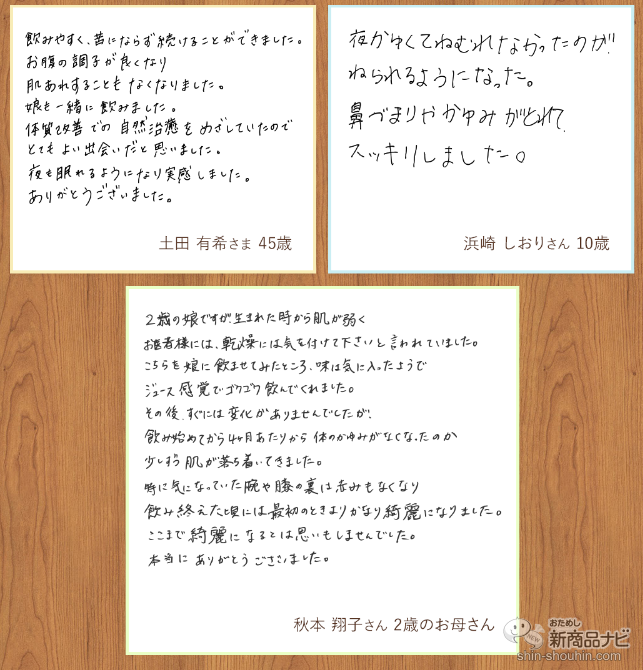 飲みやすく、苦にならず続けることができました。
お腹の調子が良くなり
肌あれすることもなくなりました。
娘も一緒に飲みました。
体質改善での自然治癒をめざしていたので
とてもよい出会いだと思いました。
夜も眠れるようになり実感しました。
ありがとうございました。
土田 有希さま 45歳
夜かゆくてねむれなかったのが
ねられるようになった。
鼻づまりやかゆみがとれて
スッキリしました。
浜崎 しおりさん 10歳
2歳の娘ですが生まれた時から肌が弱く
お医者様には、乾燥には気を付けて下さいと言われていました。
こちらを娘に飲ませてみたところ、味は気に入ったようで
ジュース感覚でゴクゴク飲んでくれました。
その後、すぐには変化がありませんでしたが、
飲み始めてから4ヶ月あたりから体のかゆみがなくなったのか
少しずつ肌が落ち着いてきました。
特に気になっていた腕や膝の裏は赤みもなくなり
飲み終えた頃には最初のときよりかなり綺麗になりました。
ここまで綺麗になるとは思いもしませんでした。
本当にありがとうございました。
秋本 翔子さん 2歳のお母さん
おためし
新商品ナビ
shin-shouhin.com
NEW